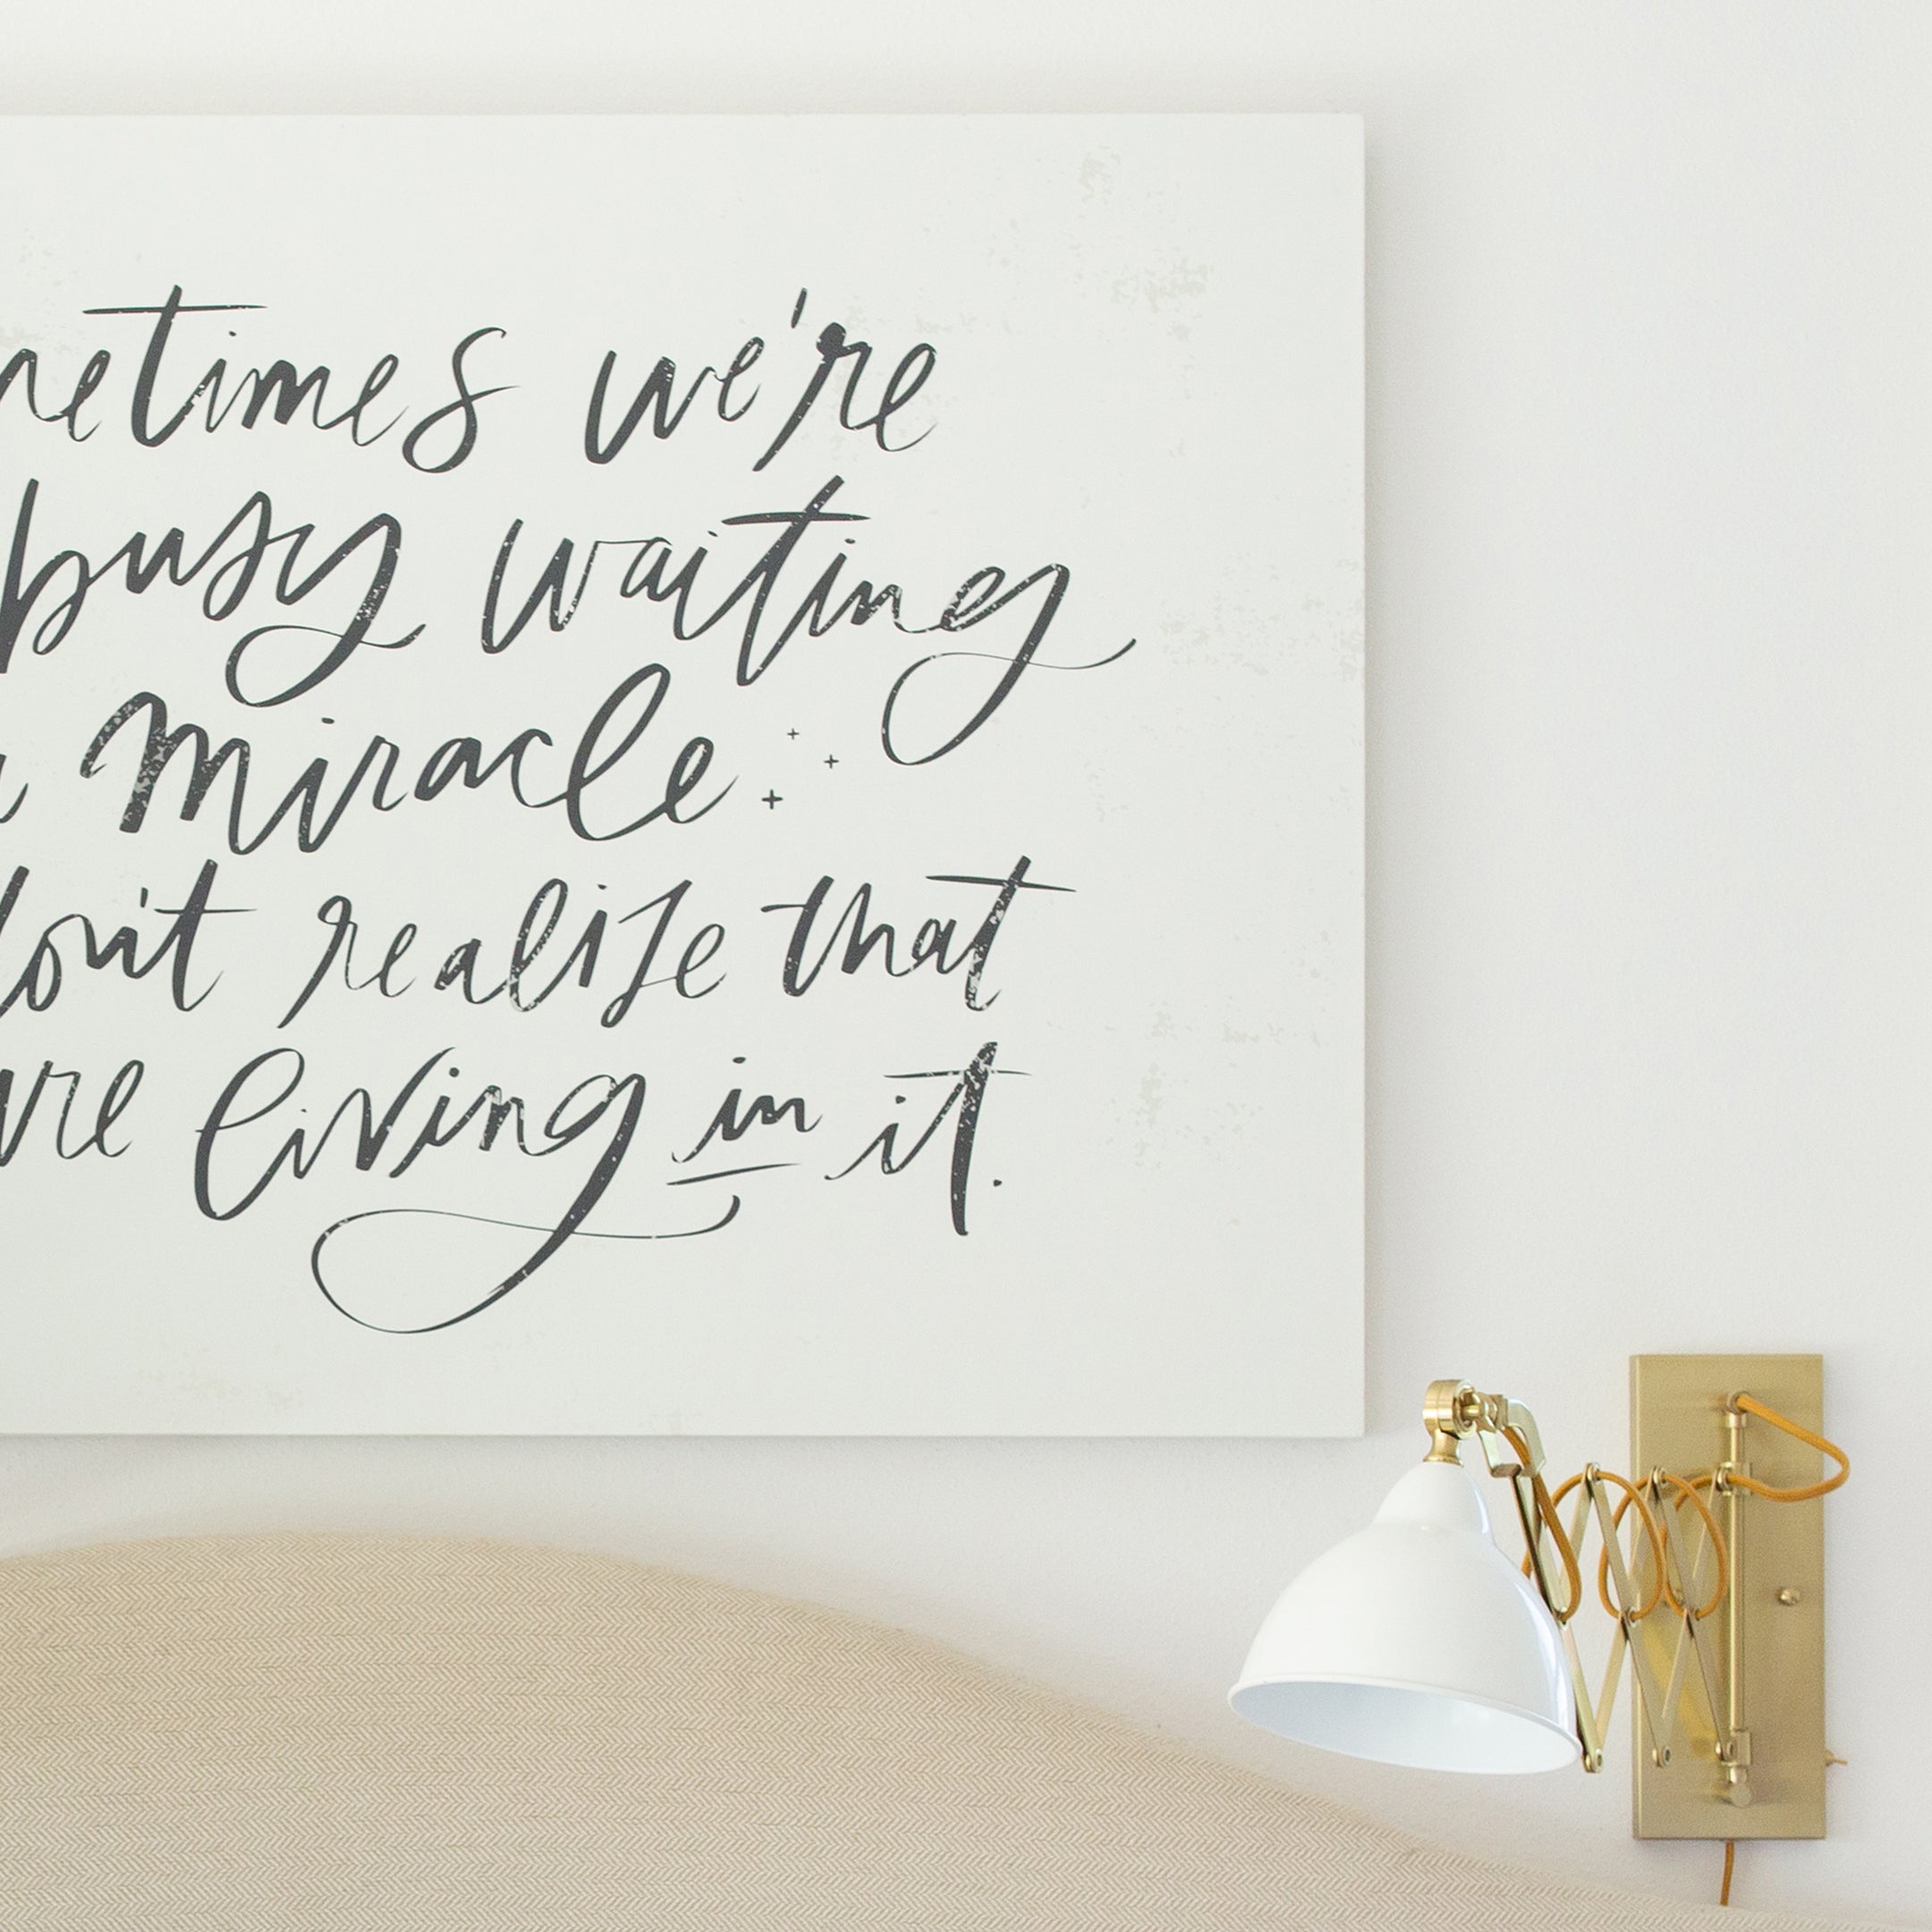 metimes we're
busy waiting
miracle
don't realize that
are living in it.